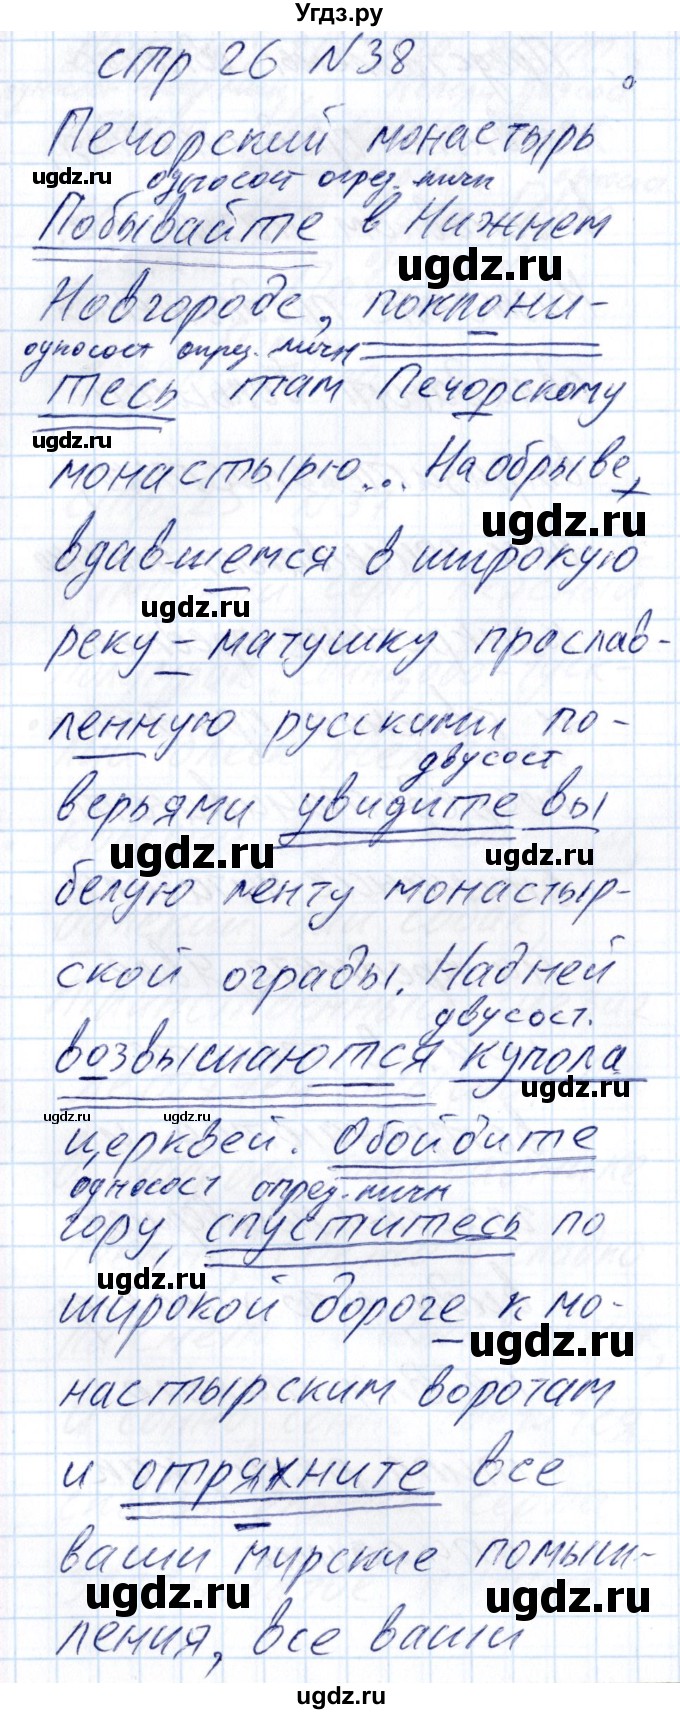 Угдз.ру
стр 26 №38
Печорский монастырь
ugdz.ru односост опред.-личн
Побывайте в Нижнем
ugdz.ru
Новгороде, поклони-
односост опред.-личн
тесь там Печорскому
ugdz.ru
монастырю... На обрыве,
ugdz.ru
вдавшемся в широкую
ugdz.ru
реку-матушку прослав-
ленную русскими по-
двусост
верьями увидите вы
ugdz.ru ugdz.ru
белую ленту монастыр-
ской ограды. Над ней
двусост.
возвышаются купола
ugdz.ru
ugdz.ru ugdz.ru
церквей. Обойдите
односост опред.-личн
гору, спуститесь по
ugdz.ru
широкой дороге к мо-
ugdz.ru
настырским воротам
и отряхните все
ваши мирские помыш-
ugdz.ru ugdz.ru
ления, все ваши
ugdz.ru